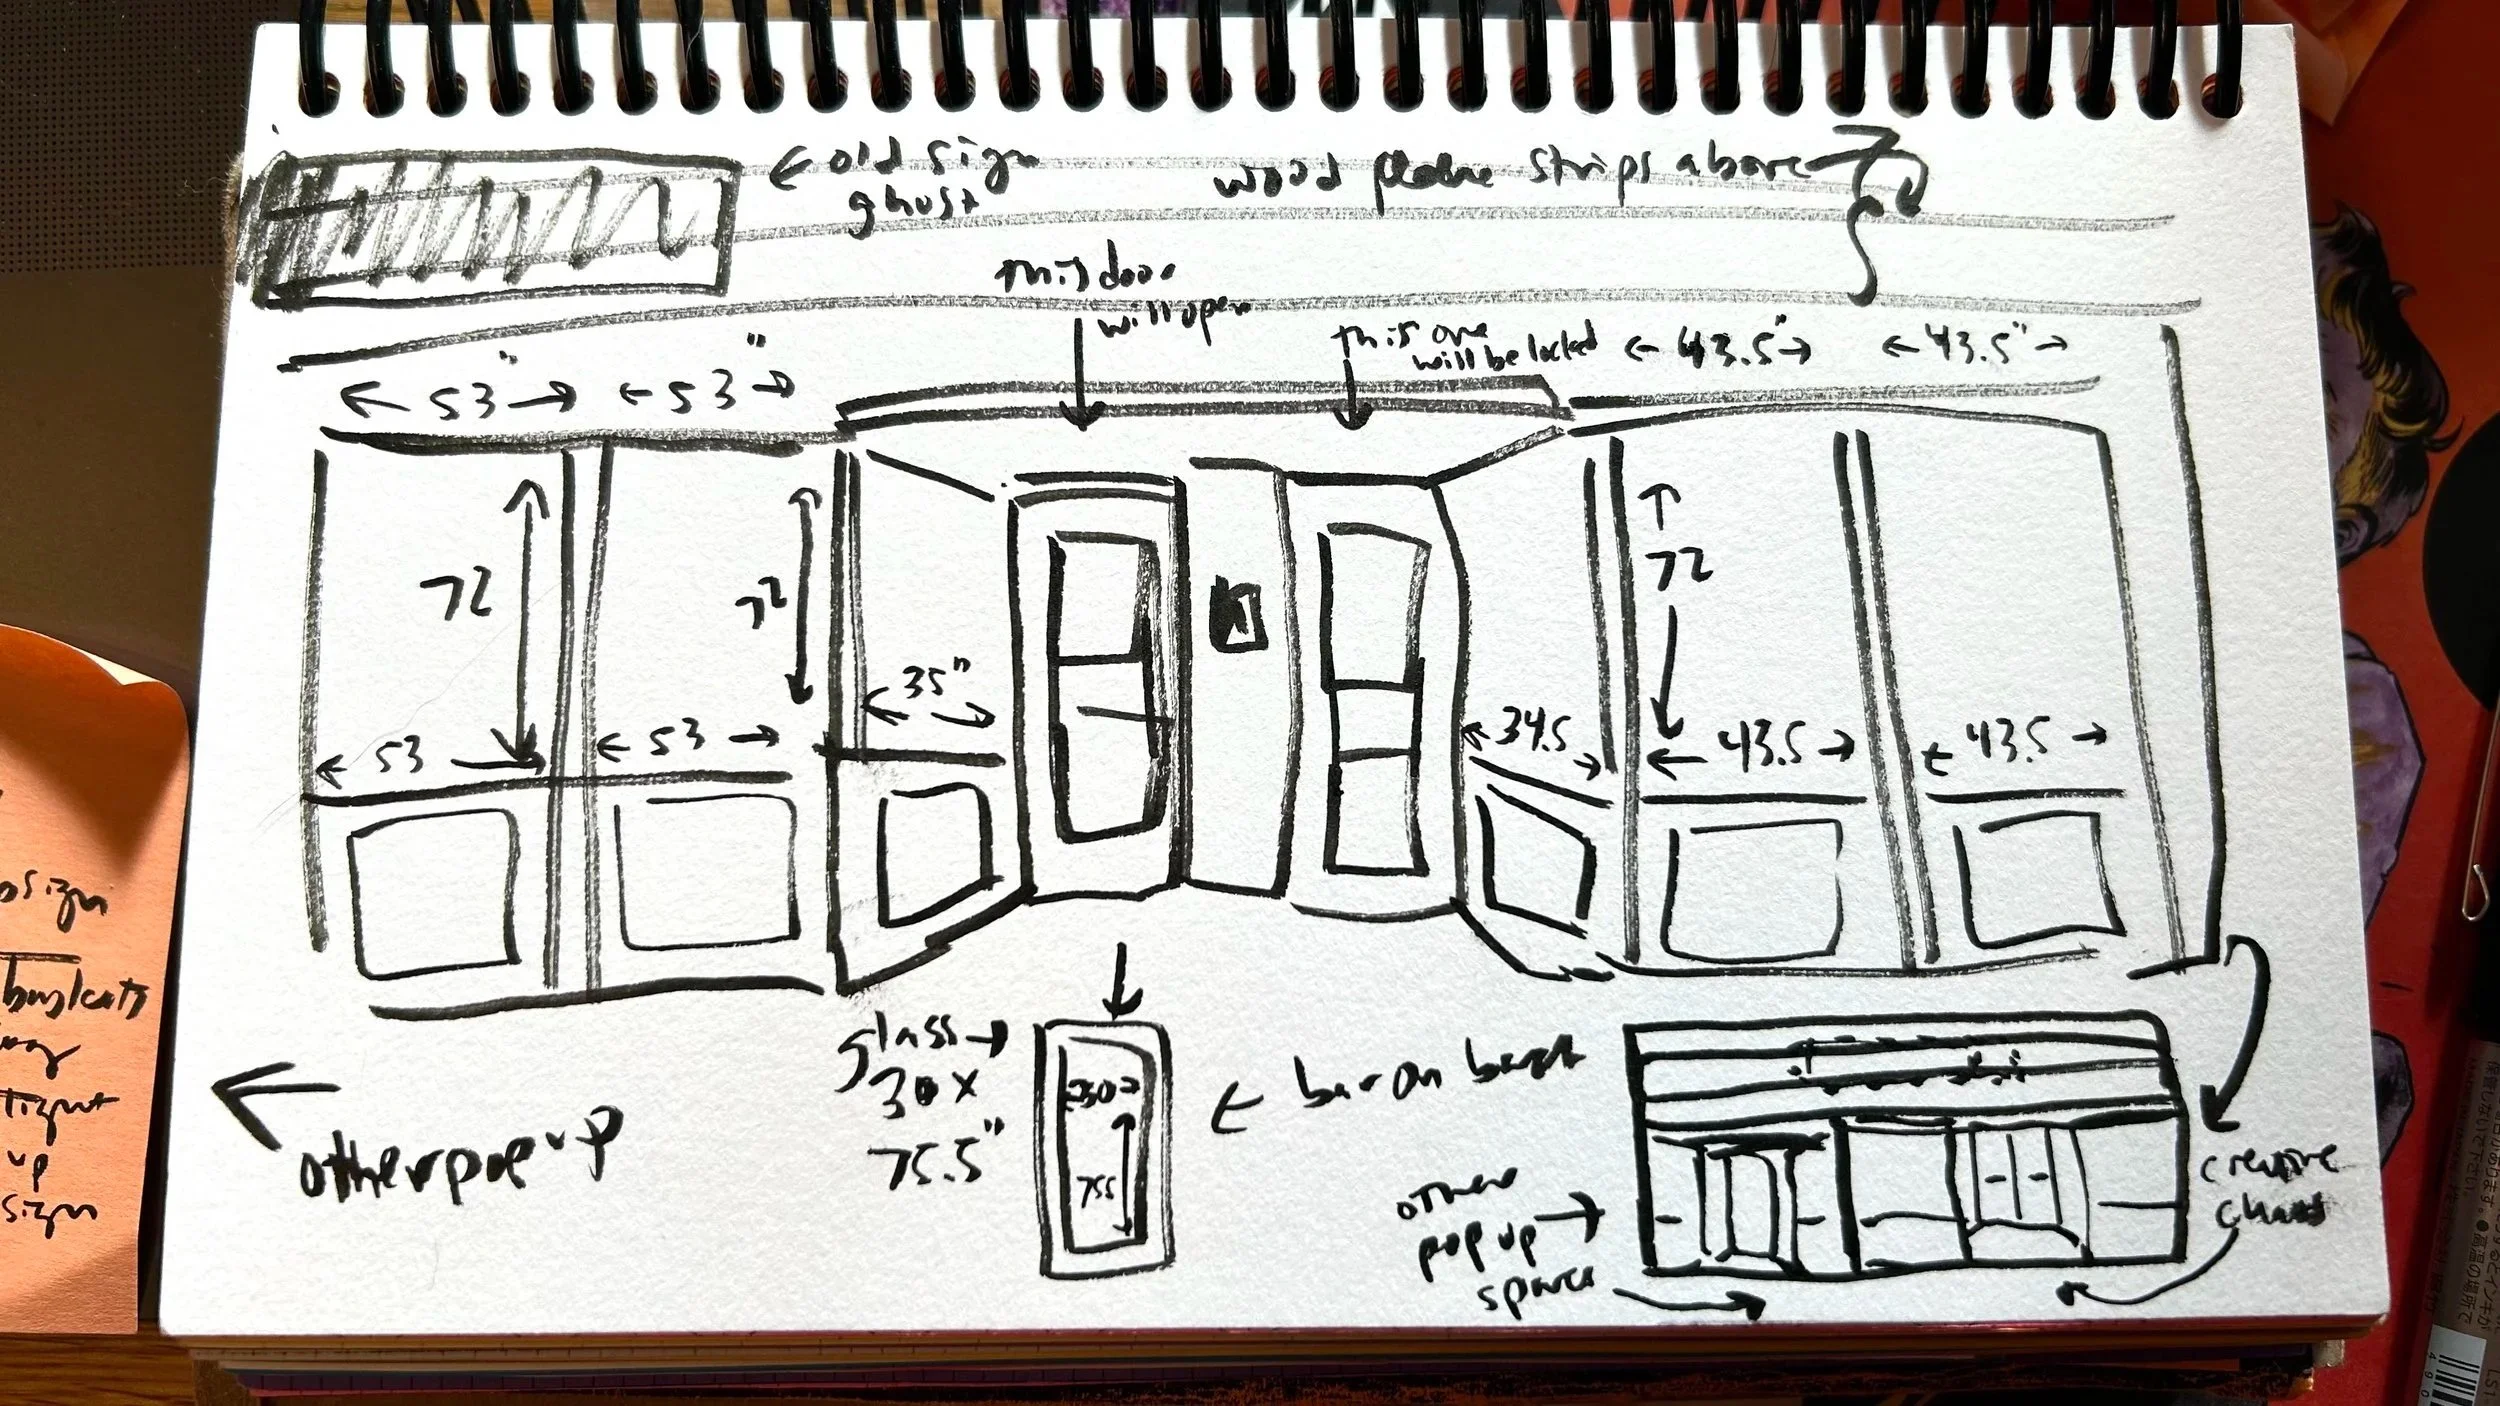 ← old sign
ghost
wood plane strips above
this door
will open
this one
will be locked
← 43.5" →
← 43.5" →
← 53" →
← 53" →
72
72
72
35"
← 53 →
← 53 →
← 34.5 →
← 43.5 →
← 43.5 →
glass →
30 x
75.5"
30
755
← bar on
← other pop up
other
pop up
spaces
creative
sign
up
sign